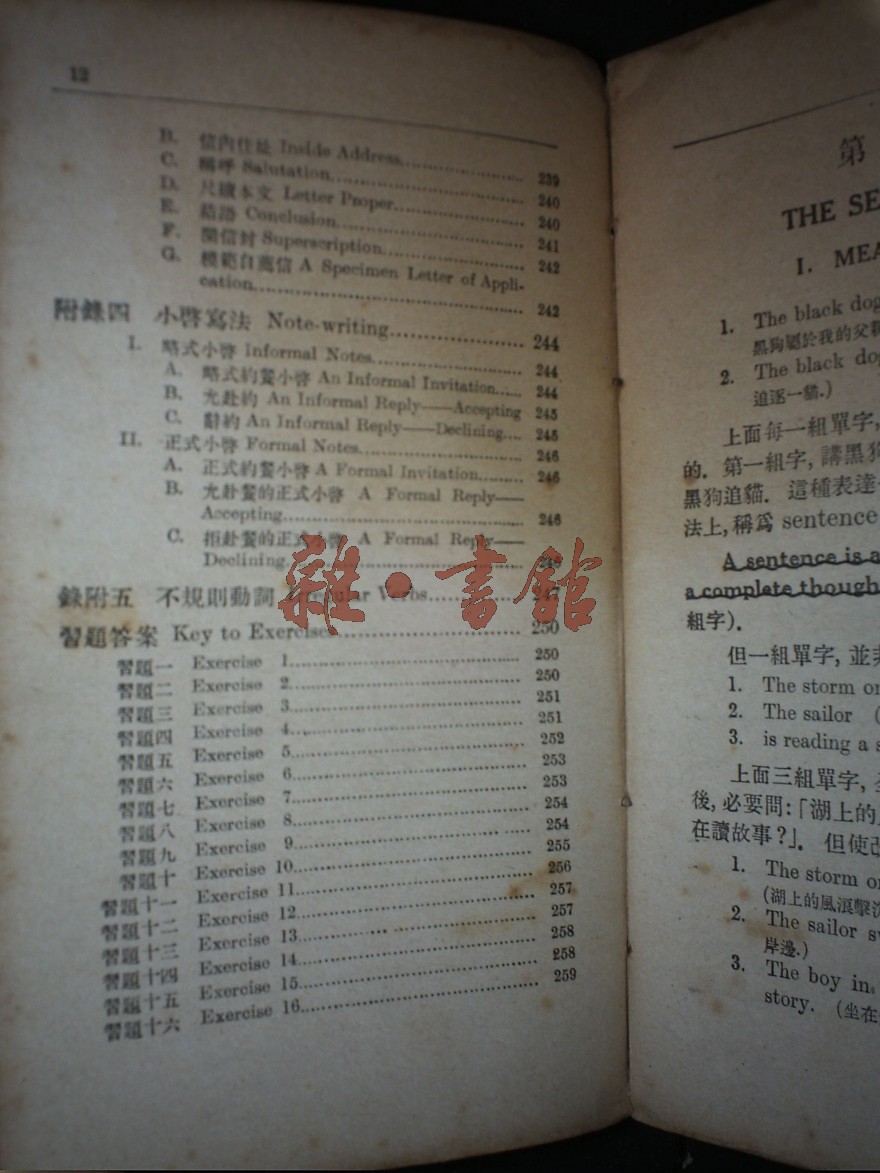 12
B. 信內住址 Inside Address 239
C. 稱呼 Salutation 240
D. 尺牘本文 Letter Proper 240
E. 結語 Conclusion 241
F. 開信封 Superscription 242
G. 模範自薦信 A Specimen Letter of Appli-
cation 242
附錄四 小啓寫法 Note-writing 244
I. 略式小啓 Informal Notes 244
A. 略式約宴小啓 An Informal Invitation 244
B. 允赴約 An Informal Reply——Accepting 245
C. 辭約 An Informal Reply——Declining 245
II. 正式小啓 Formal Notes 246
A. 正式約宴小啓 A Formal Invitation 246
B. 允赴宴的正式小啓 A Formal Reply——
Accepting 246
C. 拒赴宴的正式小啓 A Formal Reply——
Declining 246
錄附五 不規則動詞 Irregular Verbs 247
雜·書館
習題答案 Key to Exercises 250
習題一 Exercise 1 250
習題二 Exercise 2 250
習題三 Exercise 3 251
習題四 Exercise 4 251
習題五 Exercise 5 252
習題六 Exercise 6 253
習題七 Exercise 7 253
習題八 Exercise 8 254
習題九 Exercise 9 254
習題十 Exercise 10 255
習題十一 Exercise 11 256
習題十二 Exercise 12 257
習題十三 Exercise 13 257
習題十四 Exercise 14 258
習題十五 Exercise 15 258
習題十六 Exercise 16 259
第
THE SE
I. MEA
1. The black dog
黑狗屬於我的父親
2. The black dog
追逐一貓.)
上面每一組單字,
的. 第一組字, 講黑狗
黑狗追貓. 這種表達
法上, 稱爲 sentence
A sentence is a
a complete though
組字).
但一組單字, 並非
1. The storm on
2. The sailor (
3. is reading a s
上面三組單字,
後, 必要問:「湖上的
在讀故事?」. 但使改
1. The storm on
(湖上的風浪擊沈
2. The sailor sw
岸邊.)
3. The boy in
story. (坐在